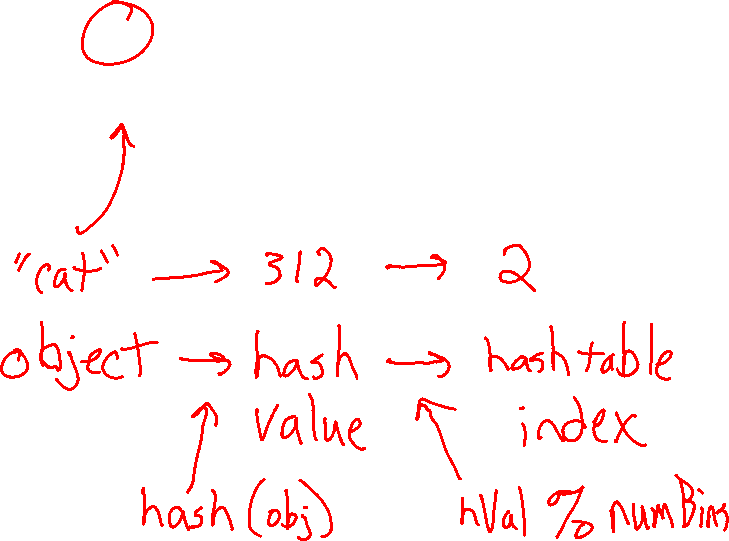 "cat" → 312 → 2
object → hash → hashtable
value index
hash(obj) hVal % numBins